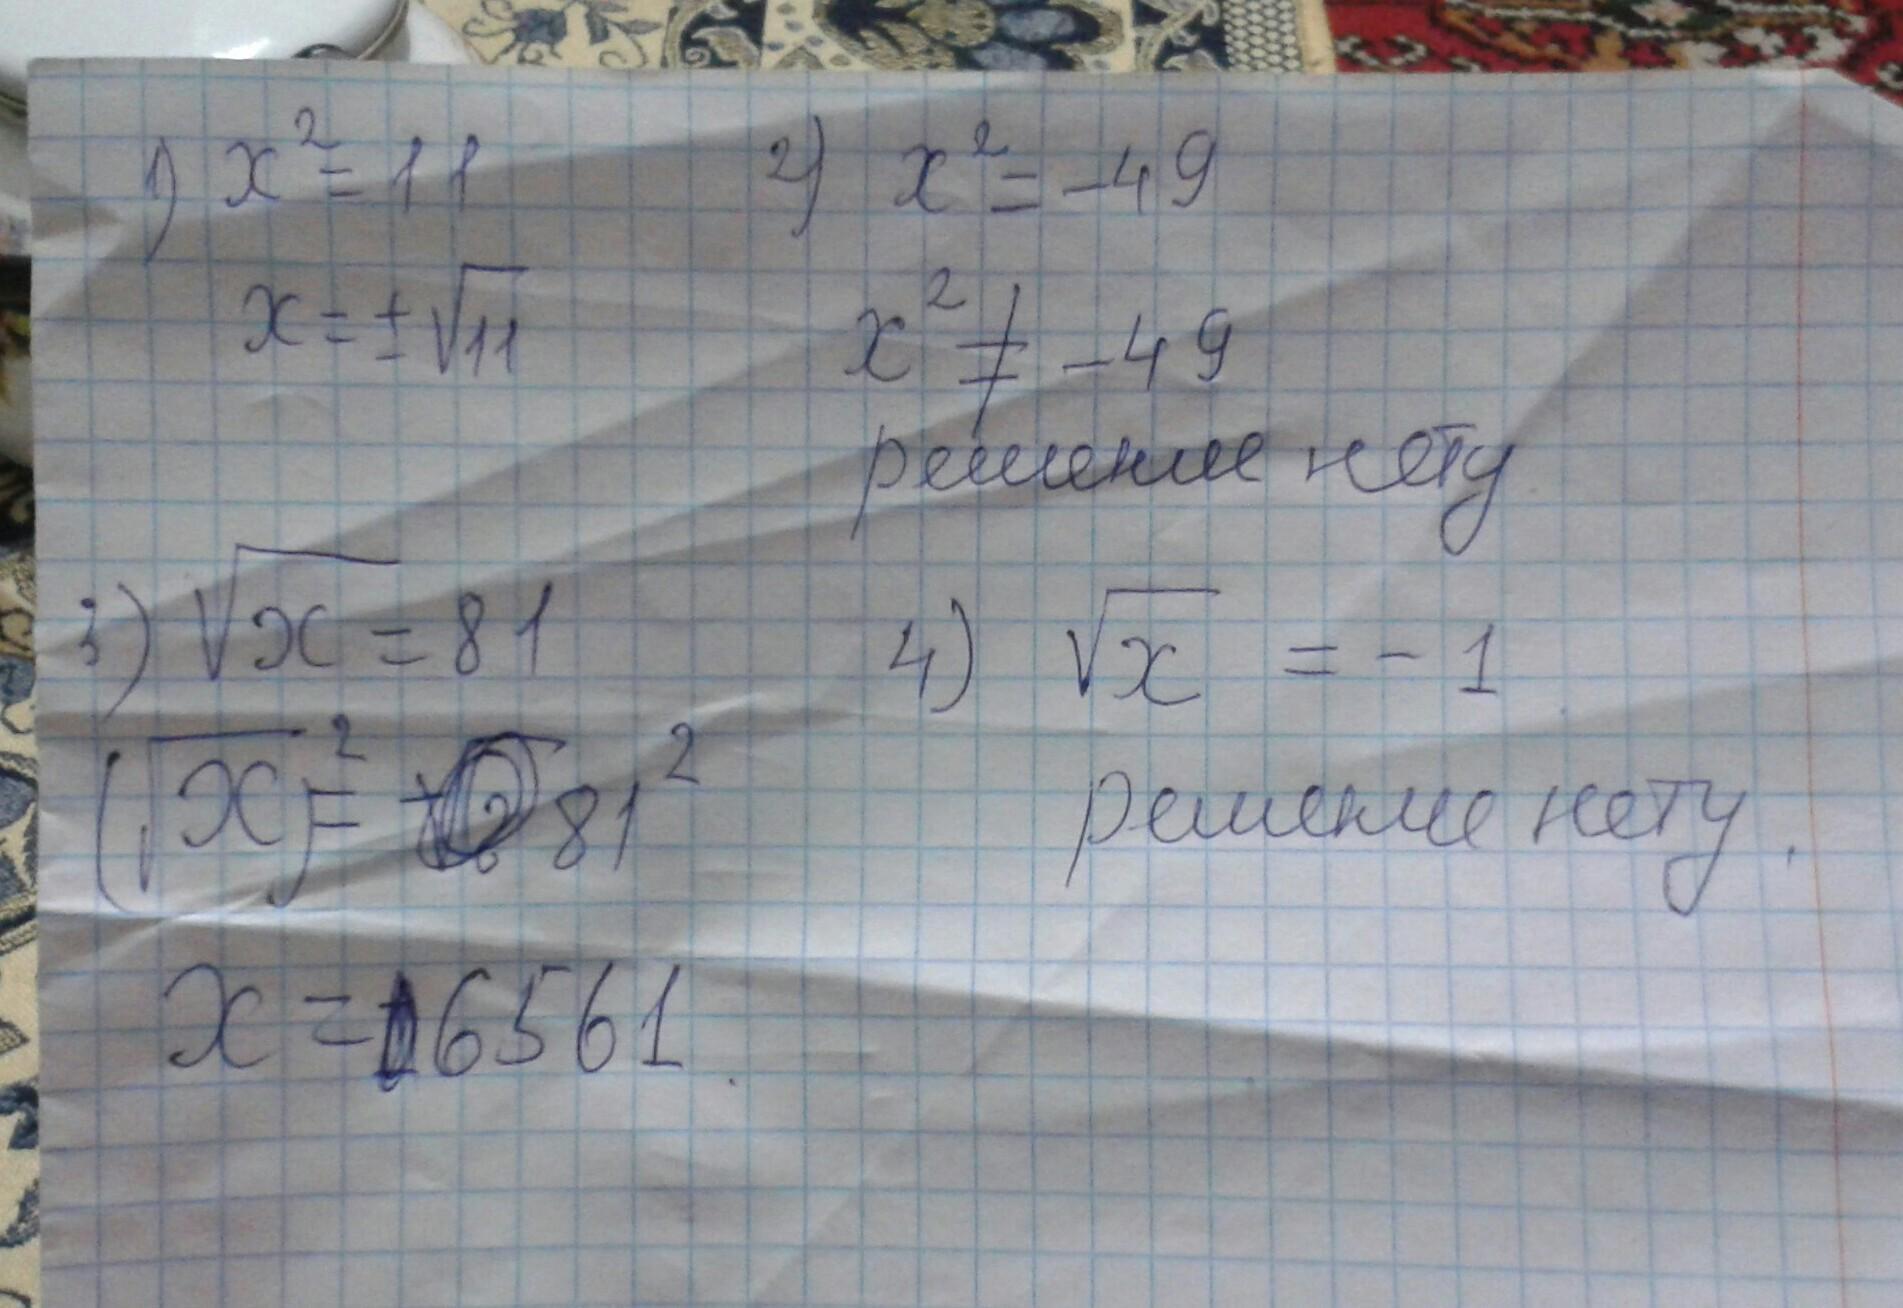 1) x² = 11
x = ±√11
2) x² = -49
x² ≠ -49
решение нету
3) √x = 81
(√x)² = 81²
x = 6561
4) √x = -1
решение нету.